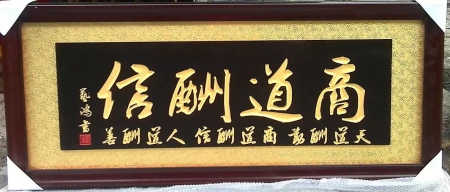 商道酬信
天道酬勤 商道酬信 人道酬善
藝鴻書